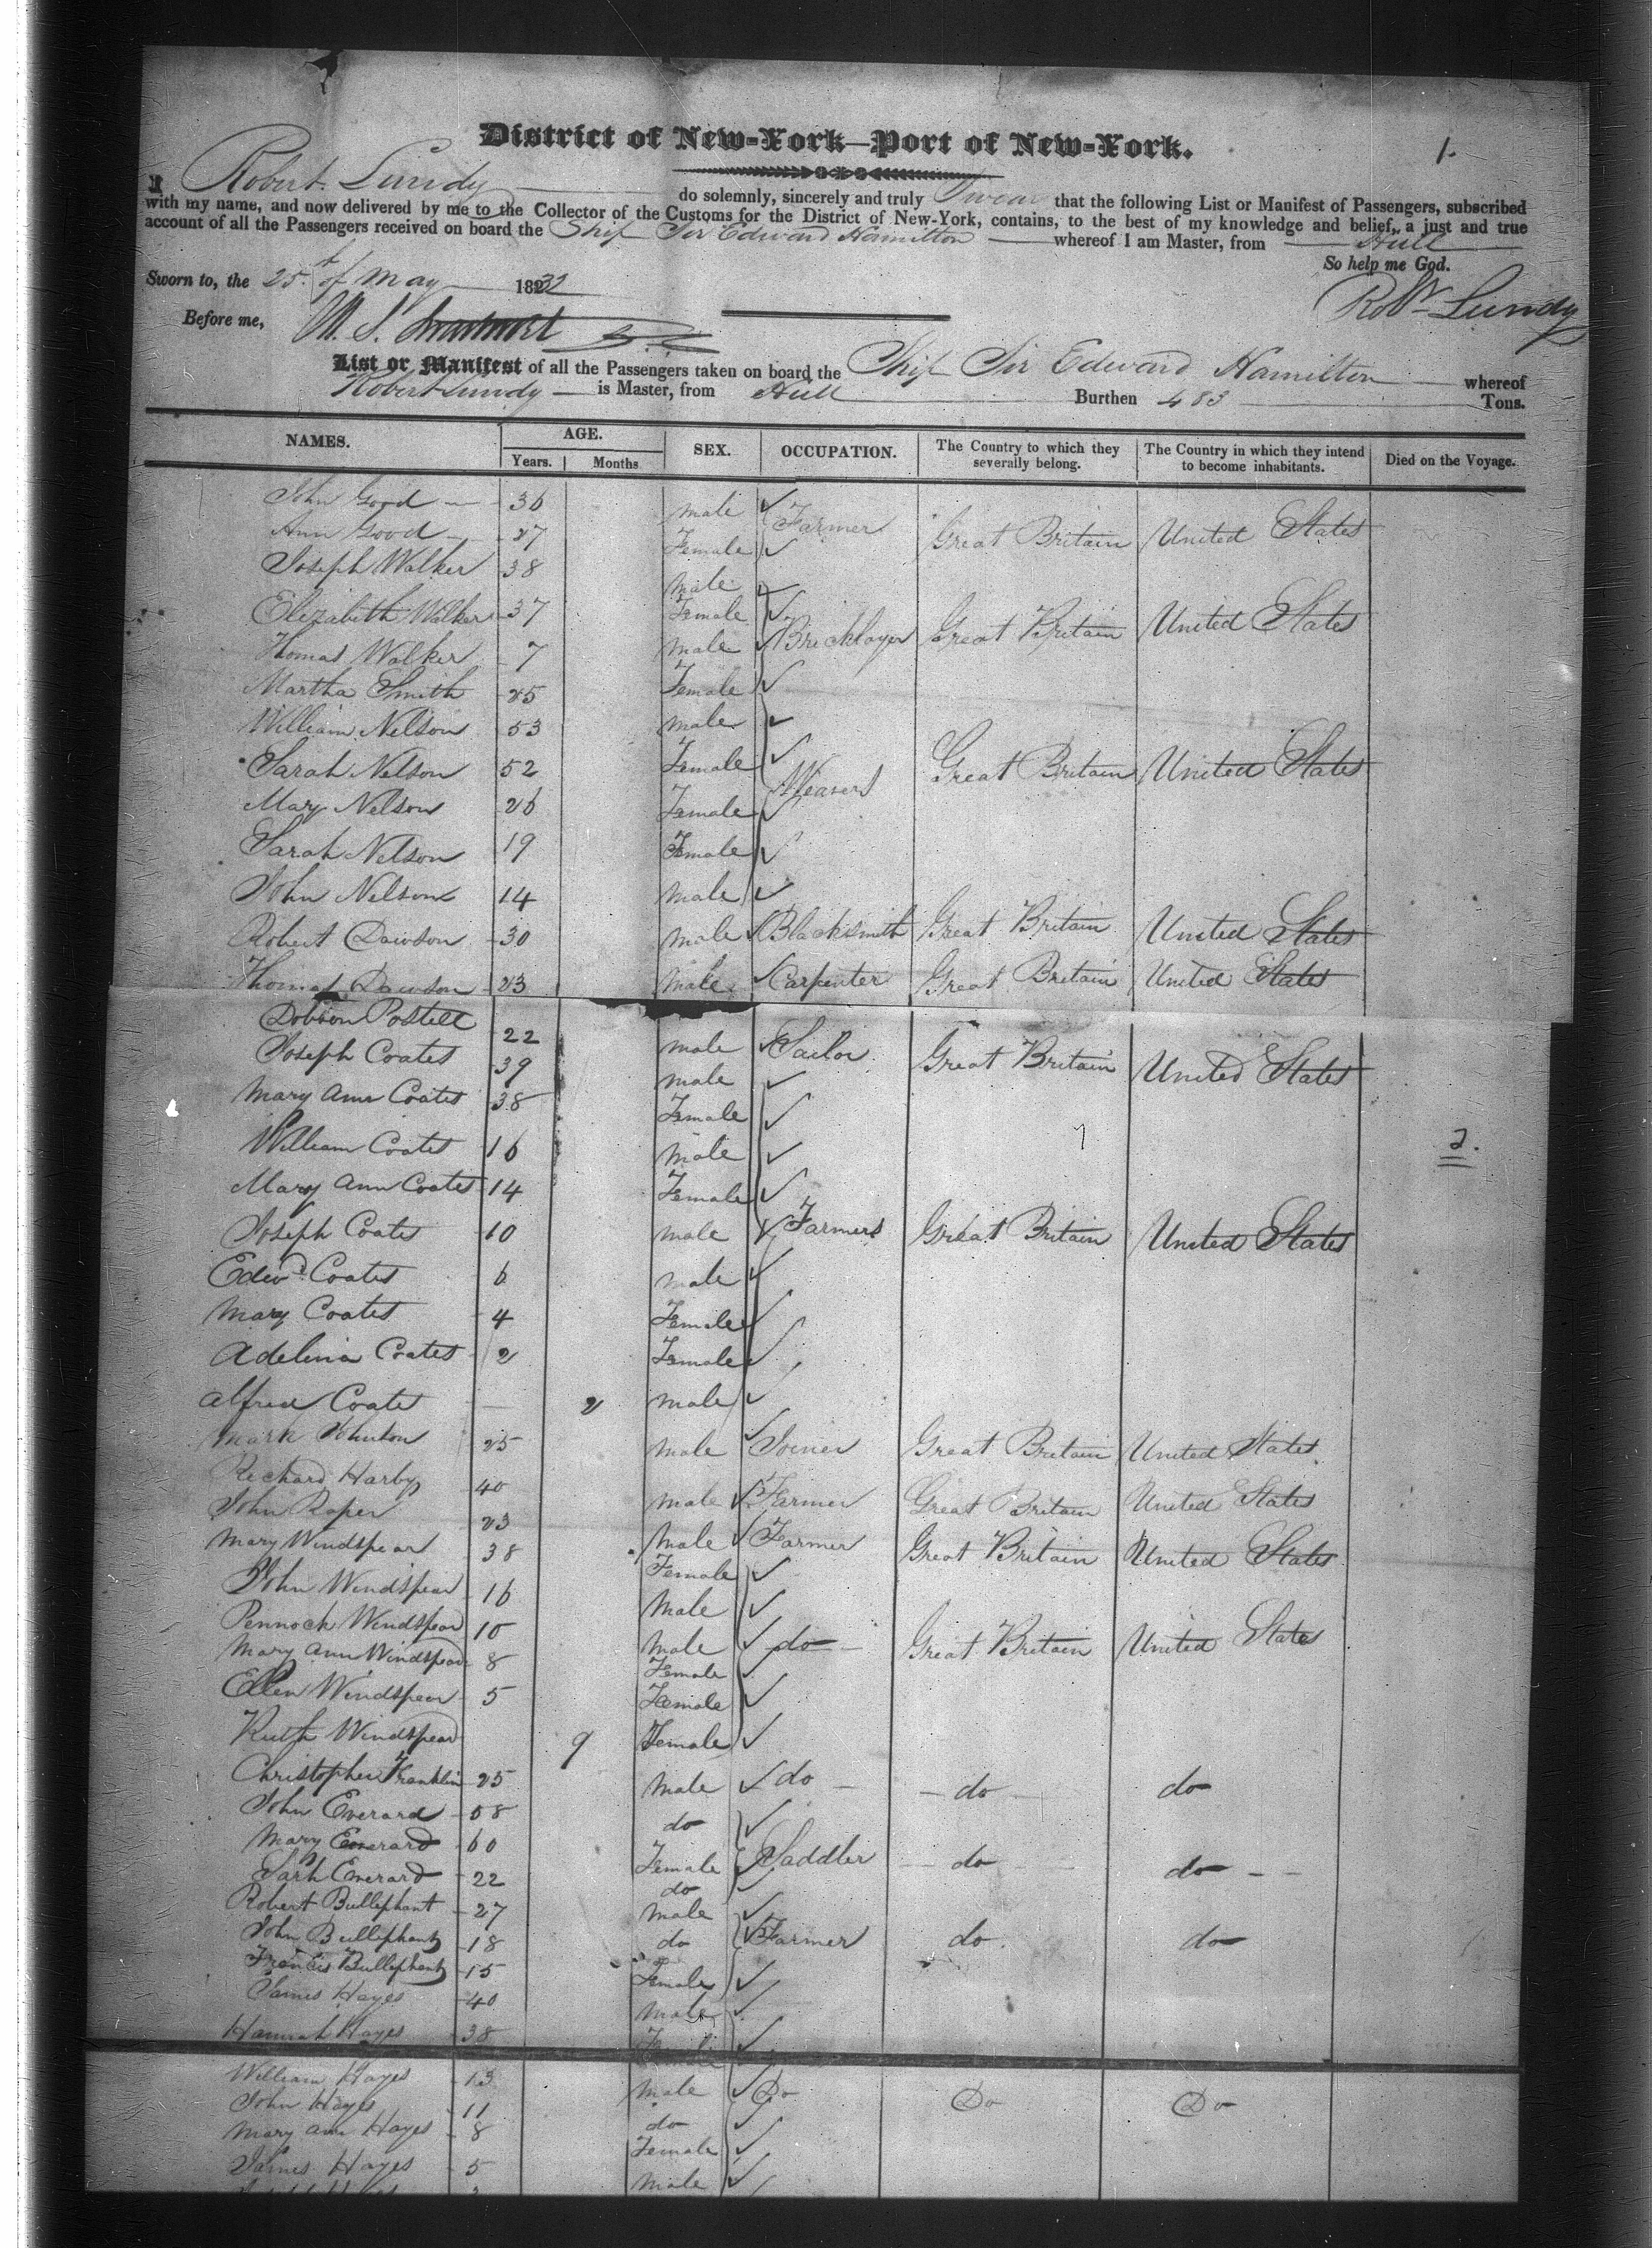 District of New-York—Port of New-York.
1.
I Robert Lundy do solemnly, sincerely and truly Swear that the following List or Manifest of Passengers, subscribed
with my name, and now delivered by me to the Collector of the Customs for the District of New-York, contains, to the best of my knowledge and belief, a just and true
account of all the Passengers received on board the Ship Sir Edward Hamilton whereof I am Master, from Hull
So help me God.
Sworn to, the 25th of May 1832
Robt Lundy
Before me,
List or Manifest of all the Passengers taken on board the Ship Sir Edward Hamilton whereof
Robert Lundy is Master, from Hull Burthen 483 Tons.
NAMES. AGE. SEX. OCCUPATION. The Country to which they severally belong. The Country in which they intend to become inhabitants. Died on the Voyage.
Years. Months
John Good 36 male Farmer Great Britain United States
Ann Good 27 Female
Joseph Walker 38 male
Elizabeth Walker 37 Female
Thomas Walker 7 male Bricklayer Great Britain United States
Martha Smith 25 Female
William Nelson 53 male
Sarah Nelson 52 Female Weavers Great Britain United States
Mary Nelson 26 Female
Sarah Nelson 19 Female
John Nelson 14 male
Robert Dawson 30 male Blacksmith Great Britain United States
Thomas Dawson 23 male Carpenter Great Britain United States
Dobson Postell 22 male Sailor Great Britain United States
Joseph Coates 39 male
Mary Ann Coates 38 Female
William Coates 16 male
2.
Mary Ann Coates 14 Female
Joseph Coates 10 male Farmers Great Britain United States
Edwd Coates 6 male
Mary Coates 4 Female
Adelina Coates 2 Female
Alfred Coates 2 male
Mark Johnson 25 male Joiner Great Britain United States
Richard Harby 40 male Farmer Great Britain United States
John Roper 23 male Farmer Great Britain United States
Mary Windspear 38 Female
John Windspear 16 male
Pennock Windspear 10 male do Great Britain United States
Mary Ann Windspear 8 Female
Ellen Windspear 5 Female
Ruth Windspear 9 Female
Christopher Franklin 25 male do do do
John Everard 58 do
Mary Everard 60 Female Saddler do do
Sarh Everard 22 do
Robert Bullephant 27 male
John Bullephant 18 do Farmer do do
Francis Bullephant 15 Female
James Hayes 40 male
Hannah Hayes 38 Female
William Hayes 13 male Do Do Do
John Hayes 11 do
Mary Ann Hayes 8 Female
James Hayes 5 male